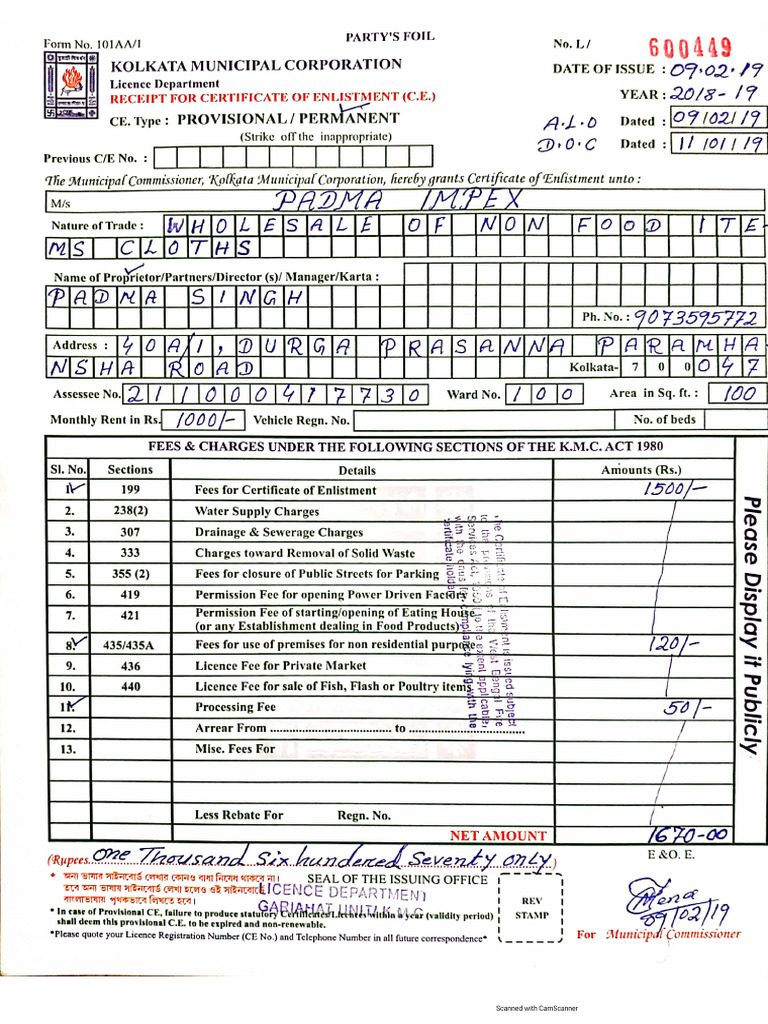 PARTY'S FOIL
Form No. 101AA/1
No. L / 600449
KOLKATA MUNICIPAL CORPORATION
DATE OF ISSUE : 09.02.19
Licence Department
RECEIPT FOR CERTIFICATE OF ENLISTMENT (C.E.)
YEAR : 2018-19
CE. Type : PROVISIONAL / PERMANENT
A.L.O Dated : 09/02/19
(Strike off the inappropriate)
D.O.C Dated : 11/01/19
Previous C/E No. :
The Municipal Commissioner, Kolkata Municipal Corporation, hereby grants Certificate of Enlistment unto :
M/s PADMA IMPEX
Nature of Trade : WHOLESALE OF NON FOOD ITE-
MS CLOTHS
Name of Proprietor/Partners/Director (s)/ Manager/Karta :
PADMA SINGH
Ph. No. : 9073595772
Address : 40A/1, DURGA PRASANNA PARAMHA
NSHA ROAD Kolkata- 700047
Assessee No. 211000417730 Ward No. 100 Area in Sq. ft. : 100
Monthly Rent in Rs. 1000/- Vehicle Regn. No. No. of beds
FEES & CHARGES UNDER THE FOLLOWING SECTIONS OF THE K.M.C. ACT 1980
Sl. No. Sections Details Amounts (Rs.)
1. 199 Fees for Certificate of Enlistment 1500/-
2. 238(2) Water Supply Charges
3. 307 Drainage & Sewerage Charges
4. 333 Charges toward Removal of Solid Waste
5. 355 (2) Fees for closure of Public Streets for Parking
6. 419 Permission Fee for opening Power Driven Factory
7. 421 Permission Fee of starting/opening of Eating House
(or any Establishment dealing in Food Products)
8. 435/435A Fees for use of premises for non residential purpose 120/-
9. 436 Licence Fee for Private Market
10. 440 Licence Fee for sale of Fish, Flash or Poultry items
11. Processing Fee 50/-
12. Arrear From .................................... to ...................................
13. Mise. Fees For
Less Rebate For Regn. No.
NET AMOUNT 1670-00
Please Display it Publicly
The Certificate of Enlistment is issued subject
to the provisions of the West Bengal Fire
Services Act, 1950 to the extent applicable,
with the onus for compliance lying with the
certificate holder
(Rupees One Thousand Six hundered Seventy only)
E &O. E.
* অন্য ভাষার সাইনবোর্ড লেখার কোনও বাধা নিষেধ থাকবে না।
তবে অন্য ভাষায় সাইনবোর্ড লেখা হলেও ওই সাইনবোর্ডে
বাংলাভাষায় পৃথকভাবে লিখতে হবে।
SEAL OF THE ISSUING OFFICE
LICENCE DEPARTMENT
GARIAHAT UNIT K.M.C
REV
STAMP
09/02/19
* In case of Provisional CE, failure to produce statutory Certificates/Licences within a year (validity period)
shall deem this provisional C.E. to be expired and non-renewable.
For Municipal Commissioner
*Please quote your Licence Registration Number (CE No.) and Telephone Number in all future correspondence*
Scanned with CamScanner